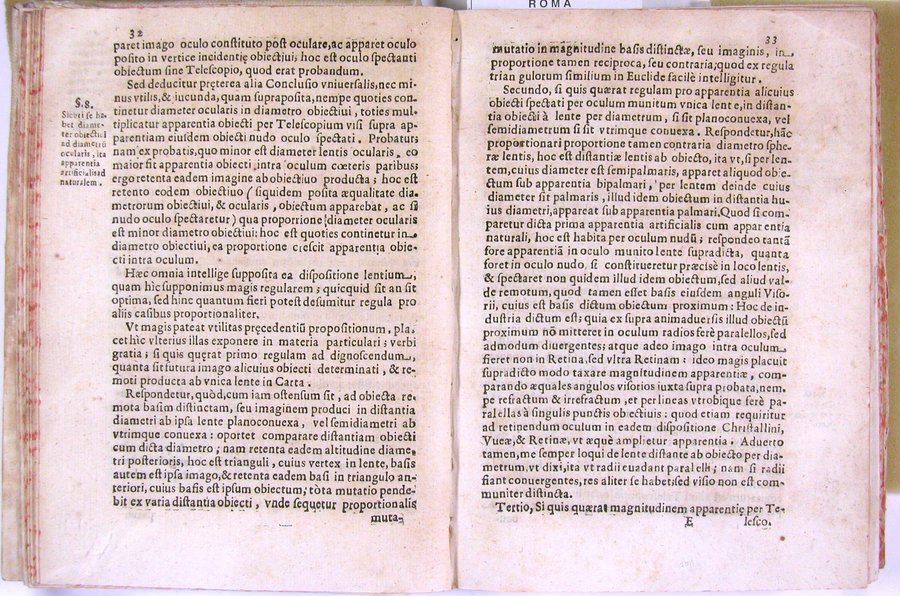 ROMA
32
paret imago oculo constituto post oculare, ac apparet oculo
posito in vertice incidentię obiectiui; hoc est oculo spectanti
obiectum sine Telescopio, quod erat probandum.
Sed deducitur pręterea alia Conclusio vniuersalis, nec mi
nus vtilis, & iucunda, quam supraposita, nempe quoties con-
tinetur diameter ocularis in diametro obiectiui, toties mul-
tiplicatur apparentia obiecti per Telescopium visi supra ap-
parentiam eiusdem obiecti nudo oculo spectati. Probatur:
nam ex probatis, quo minor est diameter lentis ocularis, eo
maior fit apparentia obiecti intra oculum cæteris paribus;
ergo retenta eadem imagine ab obiectiuo producta; hoc est
retento eodem obiectiuo (siquidem posita æqualitate dia-
metrorum obiectiui, & ocularis, obiectum apparebat, ac si
nudo oculo spectaretur) qua proportione diameter ocularis
est minor diametro obiectiui: hoc est quoties continetur in
diametro obiectiui, ea proportione crescit apparentia obie-
cti intra oculum.
Hæc omnia intellige supposita ea dispositione lentium,
quam hìc supponimus magis regularem; quicquid sit an sit
optima, sed hinc quantum fieri potest desumitur regula pro
aliis casibus proportionaliter.
Vt magis pateat vtilitas pręcedentiũ propositionum, pla,
cet hìc vlterius illas exponere in materia particulari; verbi
gratia; si quis quęrat primo regulam ad dignoscendum,
quanta sit futura imago alicuius obiecti determinati, & re-
moti producta ab vnica lente in Carta.
Respondetur, quòd, cum iam ostensum sit, ad obiecta re-
mota basim distinctam, seu imaginem produci in distantia
diametri ab ipsa lente planoconuexa, vel semidiametri ab
vtrimque conuexa: oportet comparare distantiam obiecti
cum dicta diametro; nam retenta eadem altitudine diame-
tri posterioris, hoc est trianguli, cuius vertex in lente, basis
autem est ipsa imago, & retenta eadem basi in triangulo an-
teriori, cuius basis est ipsum obiectum; tòta mutatio pende-
bit ex varia distantia obiecti, vnde sequetur proportionalis
muta-
§. 8.
Sicuti se ha-
bet diame-
ter obiectiui
ad diametrũ
ocularis, ita
apparentia
artificialis ad
naturalem.
33
mutatio in magnitudine basis distinctæ, seu imaginis, in
proportione tamen reciproca, seu contraria; quod ex regula
trian gulorum similium in Euclide facilè intelligitur.
Secundo, si quis quærat regulam pro apparentia alicuius
obiecti spectati per oculum munitum vnica lente, in distan-
tia obiecti à lente per diametrum, si sit planoconuexa, vel
semidiametrum si sit vtrimque conuexa. Respondetur, hãc
proportionari proportione tamen contraria diametro sphe-
ræ lentis, hoc est distantiæ lentis ab obiecto, ita vt, si per len-
tem, cuius diameter est semipalmaris, apparet aliquod obie-
ctum sub apparentia bipalmari, per lentem deinde cuius
diameter sit palmaris, illud idem obiectum in distantia hu-
ius diametri, appareat sub apparentia palmari. Quod si com-
paretur dicta prima apparentia artificialis cum apparentia
naturali, hoc est habita per oculum nudũ; respondeo tantã
fore apparentiã in oculo munito lente supradicta, quanta
foret in oculo nudo, si constitueretur præcisè in loco lentis,
& spectaret non quidem illud idem obiectum, sed aliud val-
de remotum, quod tamen esset basis eiusdem anguli Viso-
rii, cuius est basis dictum obiectum proximum: Hoc de in-
dustria dictum est; quia ex supra animaduersis illud obiectũ
proximum nõ mitteret in oculum radios ferè paralellos, sed
admodum diuergentes; atque adeo imago intra oculum
fieret non in Retina, sed vltra Retinam: ideo magis placuit
supradicto modo taxare magnitudinem apparentiæ, com-
parando æquales angulos visorios iuxta supra probata, nem,
pe refractum & irrefractum, et per lineas vtrobique ferè pa-
ralellas à singulis punctis obiectiuis: quod etiam requiritur
ad retinendum oculum in eadem dispositione Christallini,
Vueæ, & Retinæ, vt æquè amplietur apparentia. Aduerto
tamen, me semper loqui de lente distante ab obiecto per dia-
metrum, vt dixi, ita vt radii euadant paralelli; nam si radii
fiant conuergentes, res aliter se habet, sed visio non est com-
muniter distincta.
Tertio, Si quis quærat magnitudinem apparentię per Te-
E lesco.